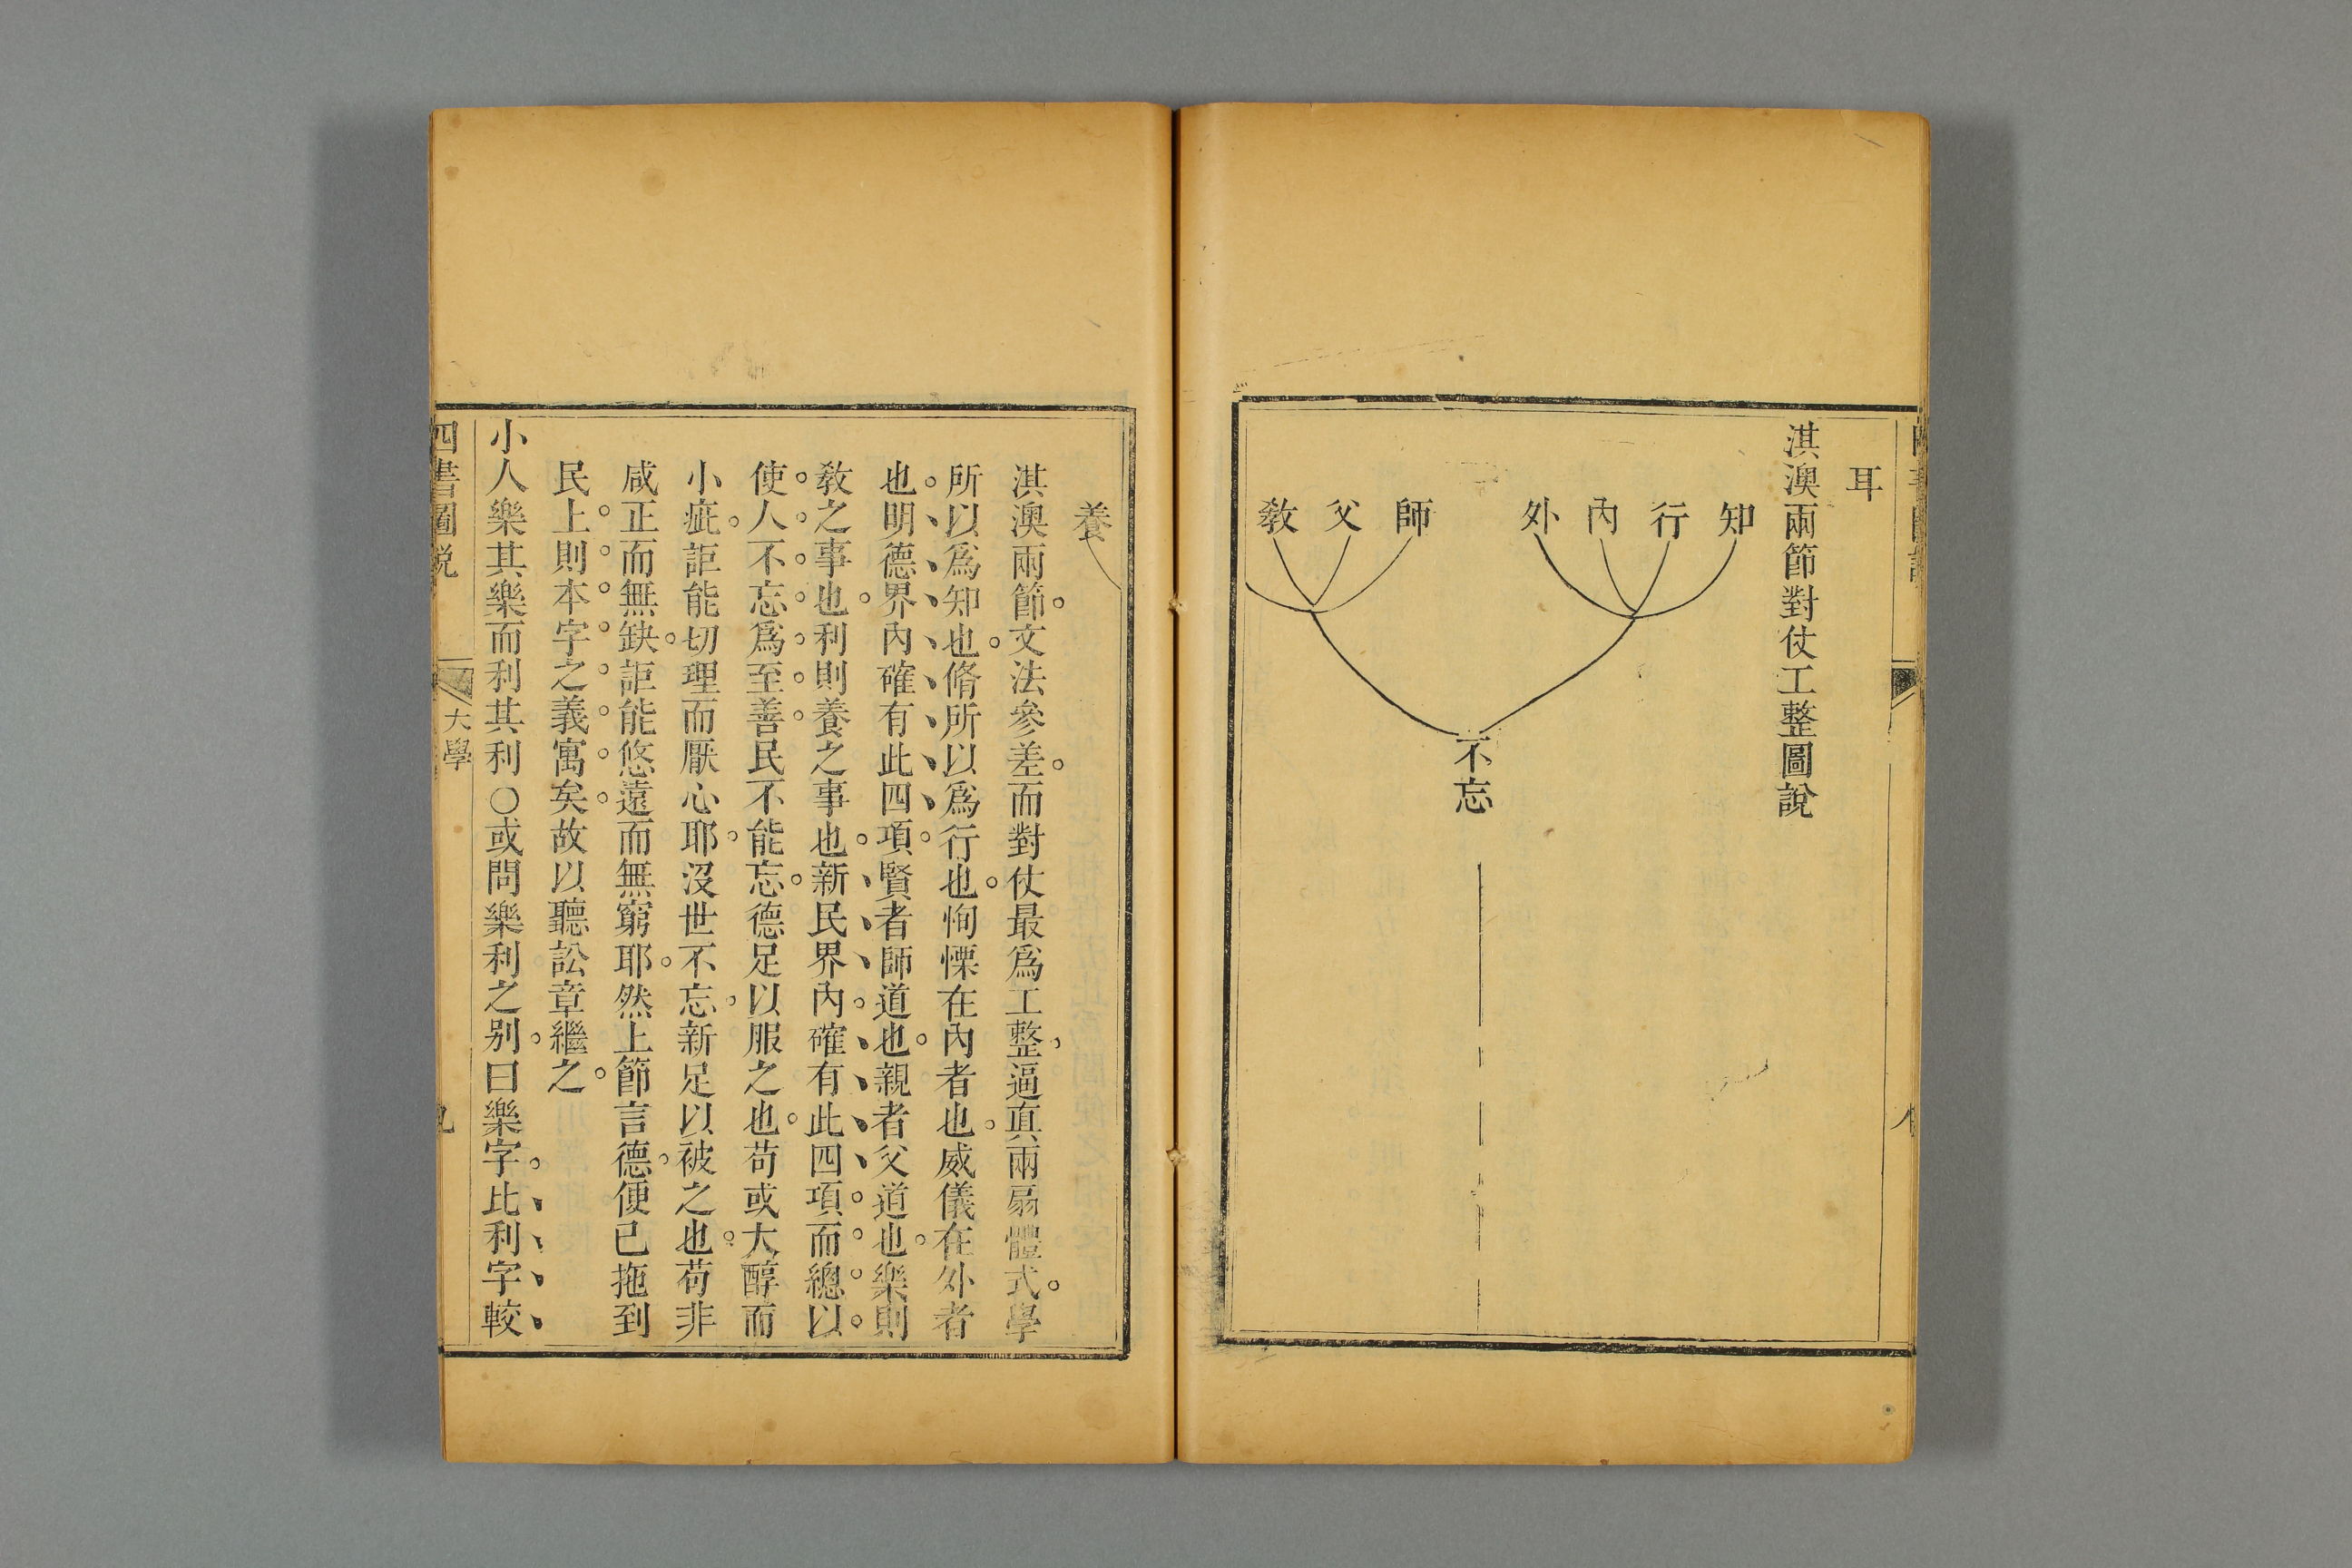 耳
淇澳兩節對仗工整圖說
知
行
內
外
師
父
敎
不忘
養
淇澳兩節文法參差而對仗最爲工整逼眞兩扇體式學
所以爲知也脩所以爲行也恂慄在內者也威儀在外者
也明德界內確有此四項賢者師道也親者父道也樂則
敎之事也利則養之事也新民界內確有此四項而總以
使人不忘爲至善民不能忘德足以服之也苟或大醇而
小疵詎能切理而厭心耶沒世不忘新足以被之也苟非
咸正而無缺詎能悠遠而無窮耶然上節言德便已拖到
民上則本字之義寓矣故以聽訟章繼之
小人樂其樂而利其利○或問樂利之别曰樂字比利字較
四書圖說
大學